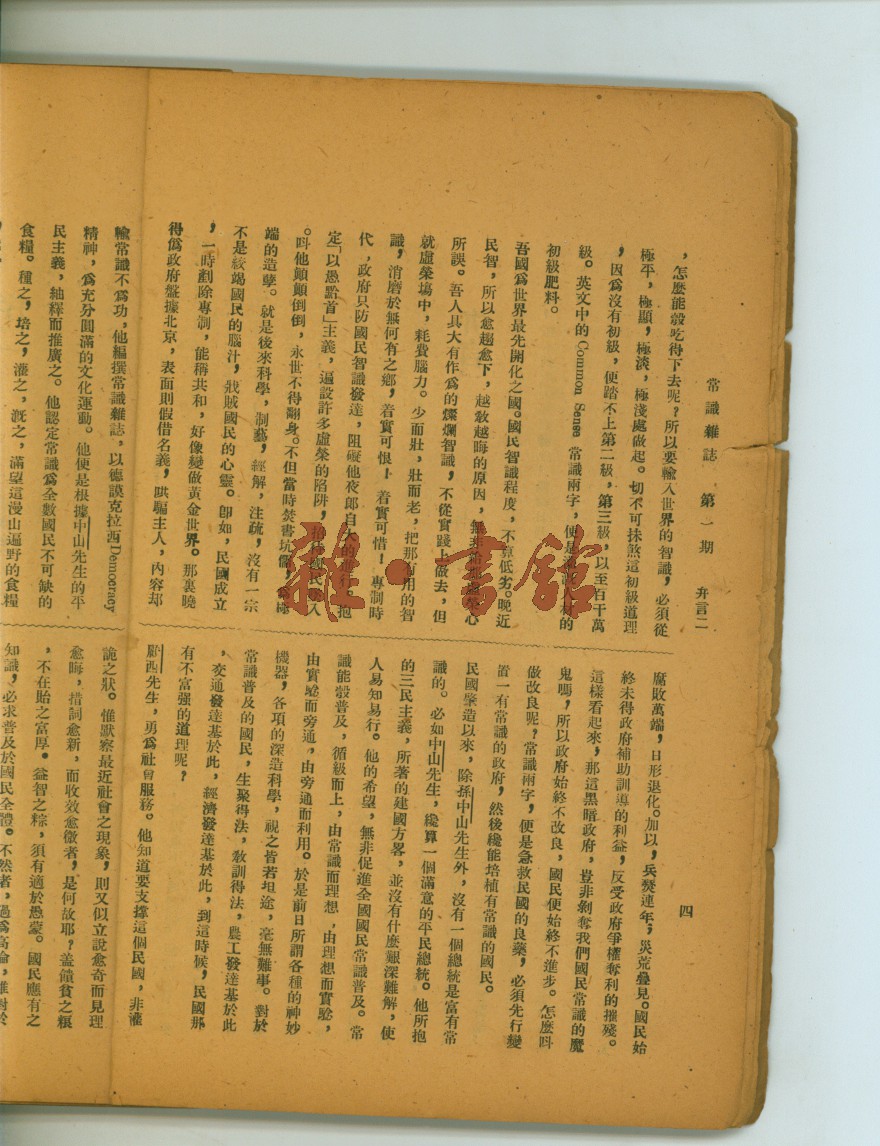 常識雜誌 第一期 弁言二
四
，怎麼能彀吃得下去呢？所以要輸入世界的智識，必須從
極平，極顯，極淡，極淺處做起。切不可抹煞這初級道理
，因爲沒有初級，便踏不上第二級，第三級，以至百千萬
級。英文中的Common Sense常識兩字，便是 的
初級肥料。
吾國爲世界最先開化之國。國民智識程度，不算低劣。晚近
民智，所以愈趨愈下，越敎越晦的原因，無非 心
所誤。吾人具大有作爲的燦爛智識，不從實踐上做去，但
就虛榮塲中，耗費腦力。少而壯，壯而老，把那有用的智
識，消磨於無何有之鄉，着實可恨！着實可惜！專制時
代，政府只防國民智識發達，阻礙他夜郎自大的進行，抱
定「以愚黔首」主義，遍設許多虛榮的陷阱， 國民 入
。呌他顛顛倒倒，永世不得翻身。不但當時焚書坑儒， 極
端的造孽。就是後來科學，制藝，經解，注疏，沒有一宗
不是絞竭國民的腦汁，戕賊國民的心靈。卽如，民國成立
，一時剷除專制，能稱共和，好像變做黃金世界。那裏曉
得僞政府盤據北京，表面則假借名義，哄騙主人，內容却
腐敗萬端，日形退化。加以，兵燹連年，災荒疊見。國民始
終未得政府補助訓導的利益，反受政府爭權奪利的摧殘。
這樣看起來，那這黑暗政府，豈非剝奪我們國民常識的魔
鬼嗎，所以政府始終不改良，國民便始終不進步。怎麼呌
做改良呢？常識兩字，便是急救民國的良藥，必須先行變
置一有常識的政府，然後纔能培植有常識的國民。
民國肇造以來，除孫中山先生外，沒有一個總統是富有常
識的。必如中山先生，纔算一個滿意的平民總統。他所抱
的三民主義，所著的建國方畧，並沒有什麼艱深難解，使
人易知易行。他的希望，無非促進全國國民常識普及。常
識能彀普及，循級而上，由常識而理想，由理想而實騐，
由實騐而旁通，由旁通而利用。於是前日所謂各種的神妙
機器，各項的深造科學，視之皆若坦途，毫無難事。對於
常識普及的國民，生聚得法，敎訓得法，農工發達基於此
，交通發達基於此，經濟發達基於此，到這時候，民國那
有不富强的道理呢？
西先生，勇爲社會服務。他知道要支撑這個民國，非灌
輸常識不爲功，他編撰常識雜誌，以德謨克拉西Democracy
精神，爲充分圓滿的文化運動。他便是根據中山先生的平
民主義，紬釋而推廣之。他認定常識爲全數國民不可缺的
食糧。種之，培之，灌之，溉之，滿望這漫山遍野的食糧
詭之狀。惟默察最近社會之現象，則又似立說愈奇而見理
愈晦，措詞愈新，而收效愈微者，是何故耶？蓋饋貧之粮
，不在貽之富厚。益智之粽，須有適於愚蒙。國民應有之
知識，必求普及於國民全體。不然者，過爲高論，